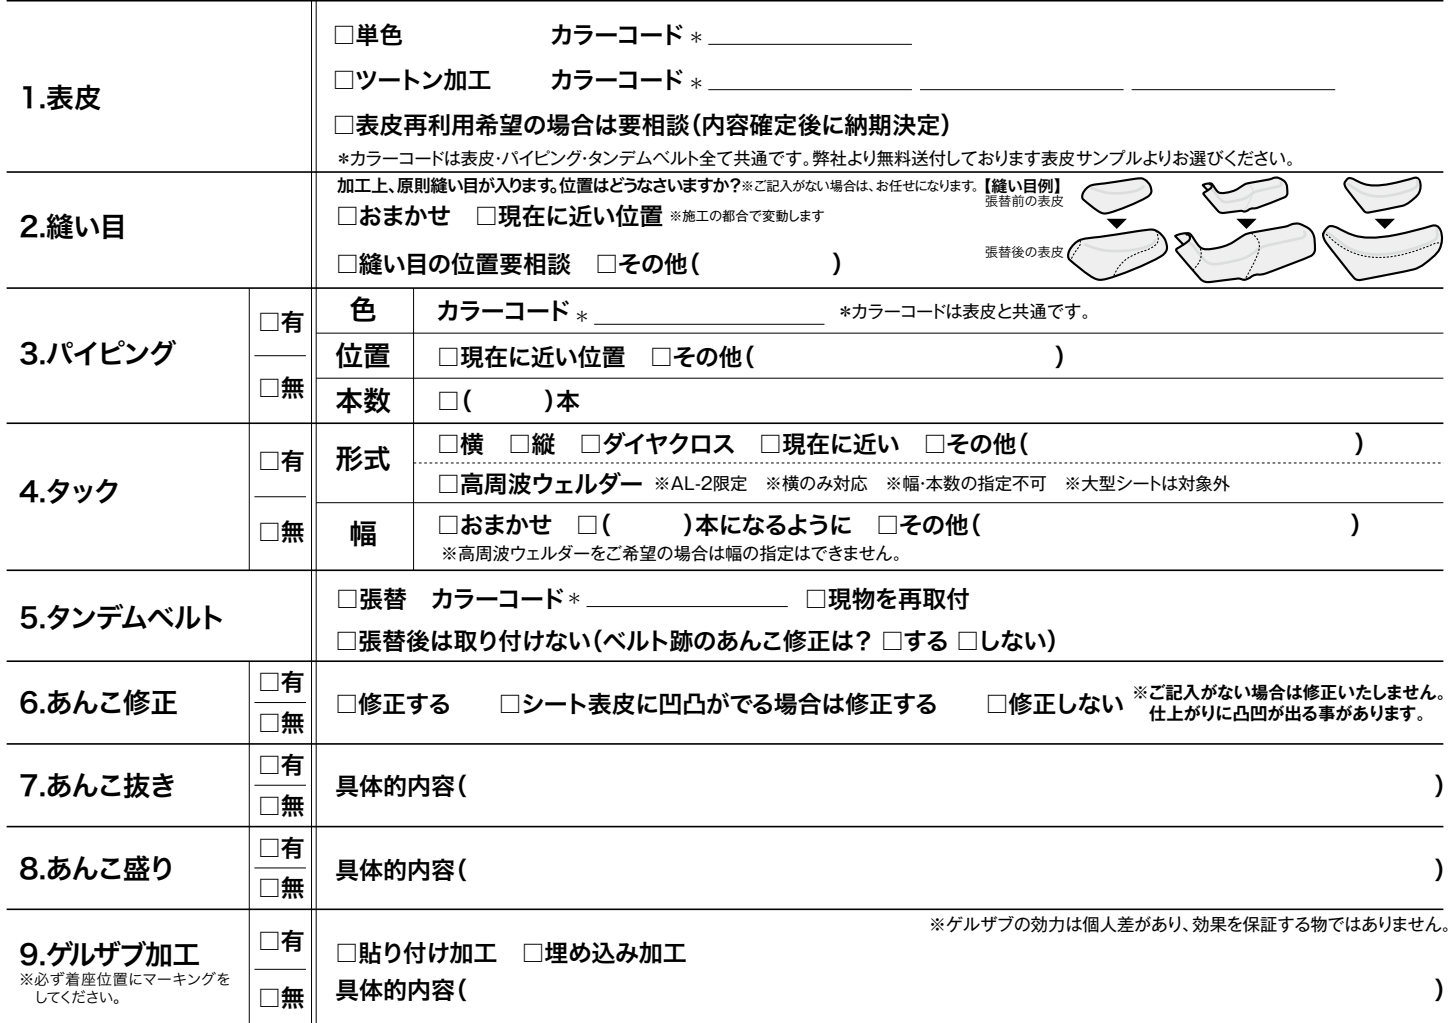 1.表皮
□単色 カラーコード＊
□ツートン加工 カラーコード＊
□表皮再利用希望の場合は要相談（内容確定後に納期決定）
＊カラーコードは表皮・パイピング・タンデムベルト全て共通です。弊社より無料送付しております表皮サンプルよりお選びください。
2.縫い目
加工上、原則縫い目が入ります。位置はどうなさいますか？※ご記入がない場合は、お任せになります。
□おまかせ □現在に近い位置 ※施工の都合で変動します
□縫い目の位置要相談 □その他（ ）
【縫い目例】
張替前の表皮
張替後の表皮
3.パイピング
□有
□無
色 カラーコード＊ ＊カラーコードは表皮と共通です。
位置 □現在に近い位置 □その他（ ）
本数 □（ ）本
4.タック
□有
□無
形式 □横 □縦 □ダイヤクロス □現在に近い □その他（ ）
□高周波ウェルダー ※AL-2限定 ※横のみ対応 ※幅・本数の指定不可 ※大型シートは対象外
幅 □おまかせ □（ ）本になるように □その他（ ）
※高周波ウェルダーをご希望の場合は幅の指定はできません。
5.タンデムベルト
□張替 カラーコード＊ □現物を再取付
□張替後は取り付けない（ベルト跡のあんこ修正は？ □する □しない）
6.あんこ修正
□有
□無
□修正する □シート表皮に凹凸がでる場合は修正する □修正しない
※ご記入がない場合は修正いたしません。
仕上がりに凸凹が出る事があります。
7.あんこ抜き
□有
□無
具体的内容（ ）
8.あんこ盛り
□有
□無
具体的内容（ ）
9.ゲルザブ加工
※必ず着座位置にマーキングを
してください。
□有
□無
※ゲルザブの効力は個人差があり、効果を保証する物ではありません。
□貼り付け加工 □埋め込み加工
具体的内容（ ）